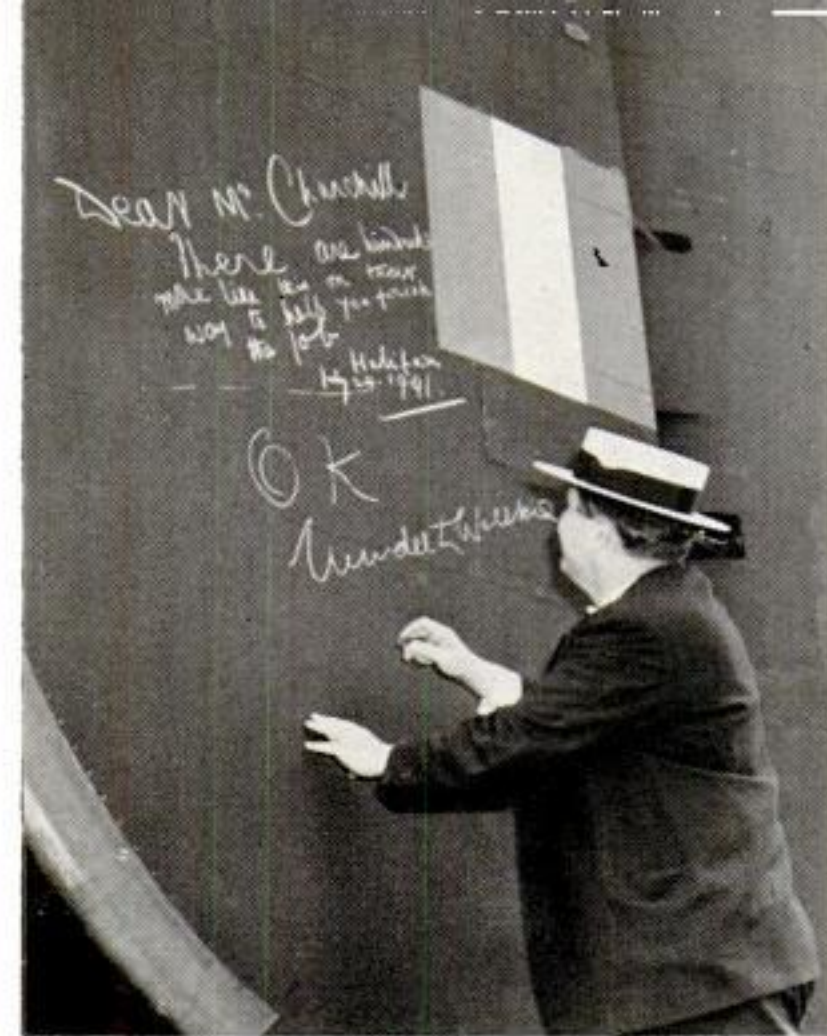 Dear Mr. Churchill
There are hundreds
more like this on their
way to help you finish
the job
Halifax
July 24. 1941.
OK
Wendell Willkie